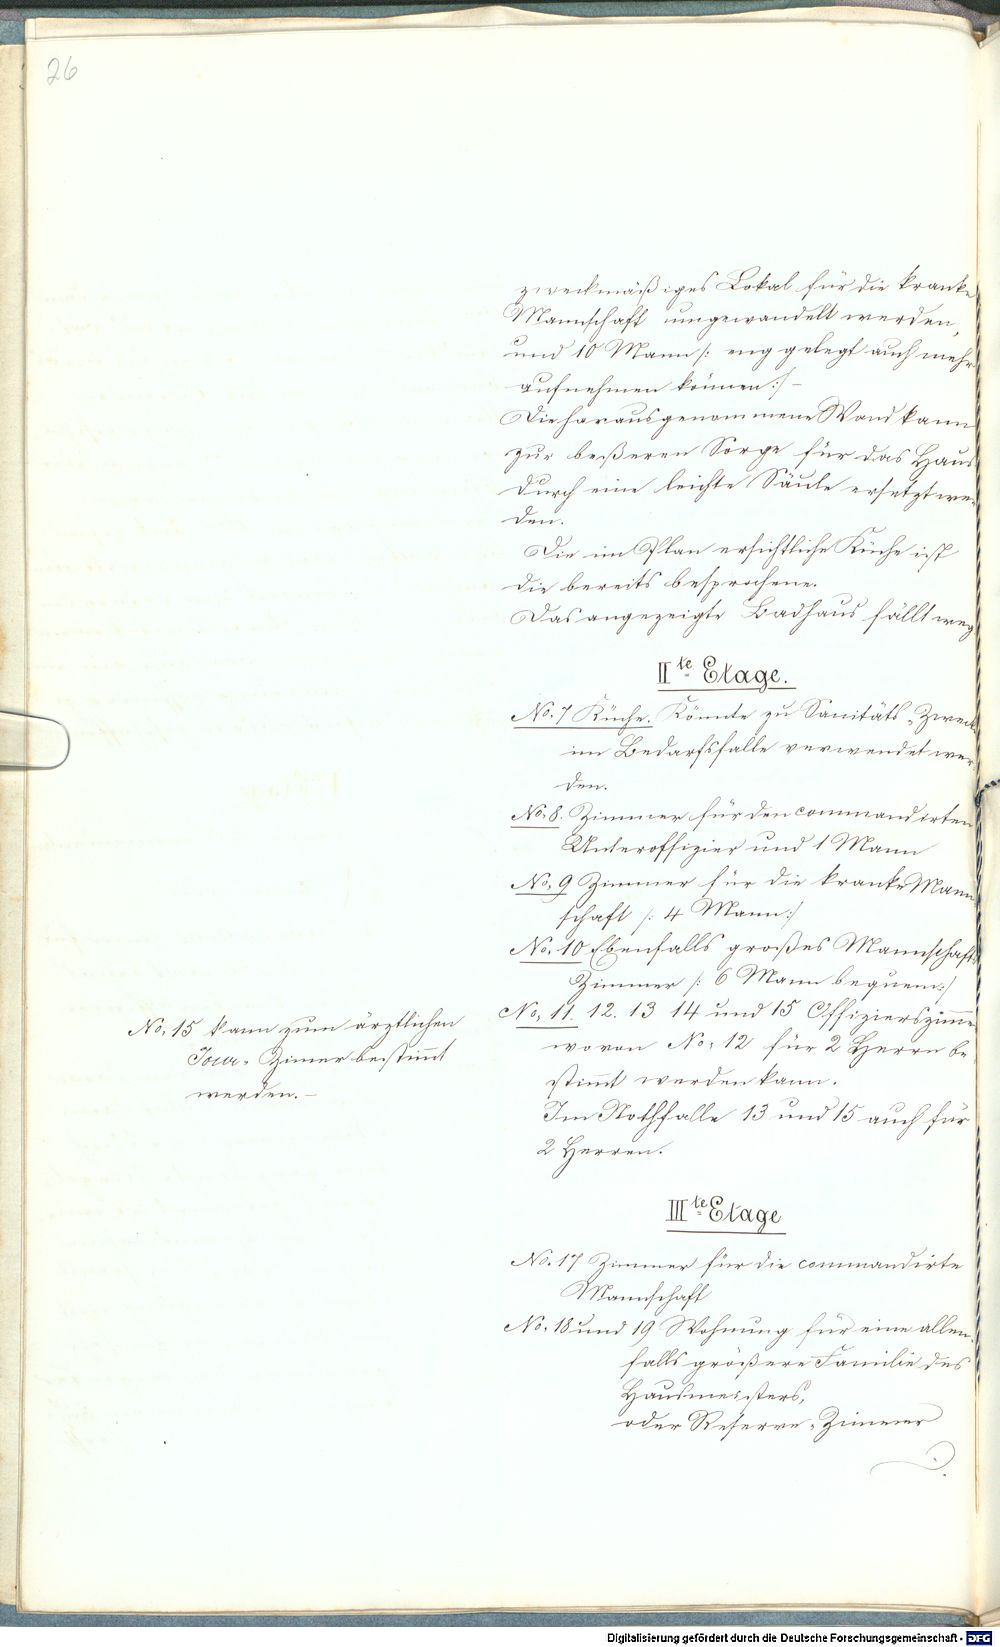 26
zweckmäßiges Lokal für die kranke
Mannschaft umgewandelt werden,
und 10 Mann /: eng gelegt auch mehr
aufnehmen können :/ –
Die herausgenommene Wand kann
zur beßeren Sorge für das Haus
durch eine leichte Säule ersetzt wer-
den.
Die im Plan ersichtliche Küche ist
die bereits besprochene.
Das angezeigte Badhaus fällt weg
IIte Etage.
No. 7 Küche. Könnte zu Sanitäts-Zweck
im Bedarfsfalle verwendet wer
den.
No. 8. Zimmer für den commandirten
Unteroffizier und 1 Mann
No. 9 Zimmer für die kranke Mann
schaft /: 4 Mann :/
No. 10 Ebenfalls großes Mannschafts
Zimmer /: 6 Mann bequem :/
No. 11. 12. 13 14 und 15 Offizierszimme
wovon No. 12 für 2 Herrn be
stimt werden kann.
Im Nothfalle 13 und 15 auch für
2 Herren.
No. 15 kann zum ärztlichen
Jour-Zimer bestimt
werden. –
IIIte Etage
No. 17 Zimmer für die commandirte
Mannschaft
No. 18 und 19 Wohnung für eine allen
falls größere Familie des
Hausmeisters,
oder Reserve-Zimmer
Digitalisierung gefördert durch die Deutsche Forschungsgemeinschaft - DFG